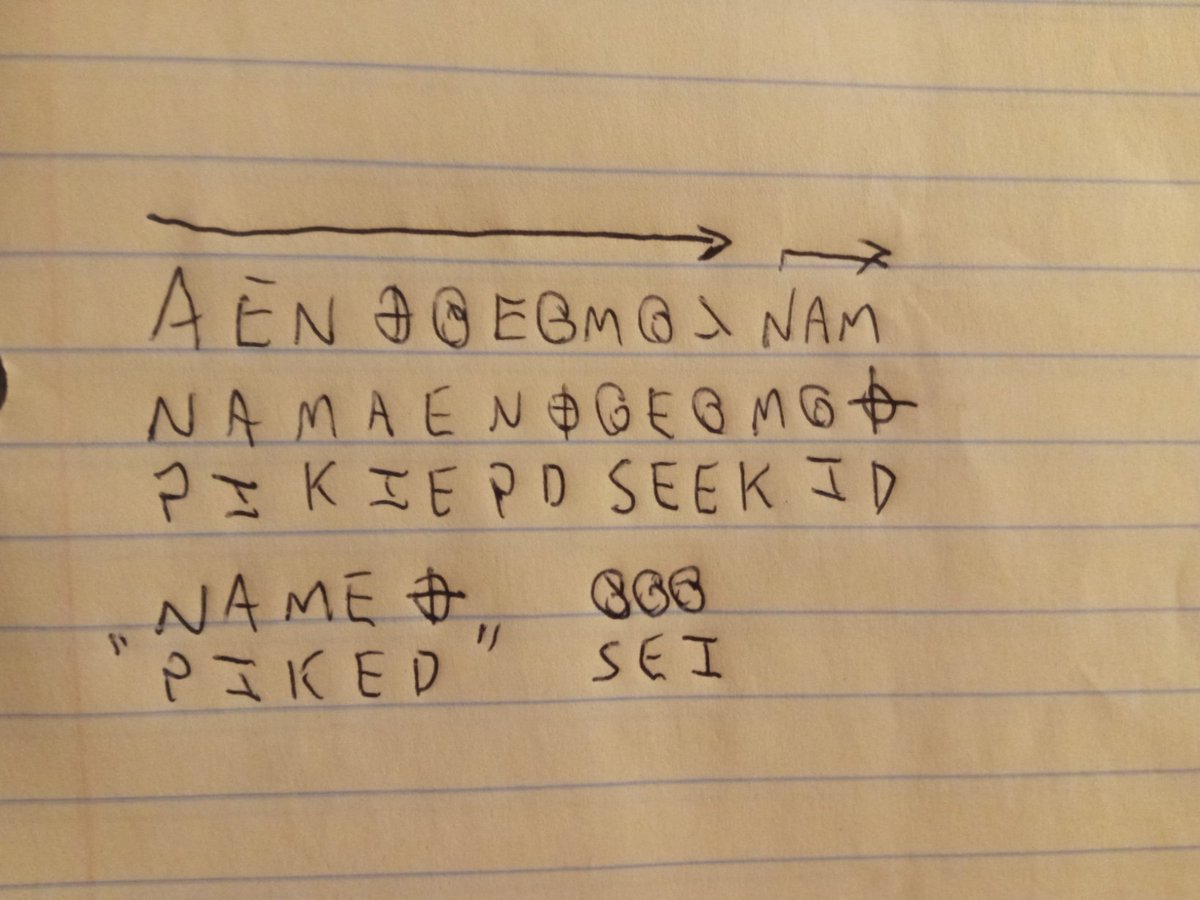 A E N ⊕ 8 E 8 M 8 ⅄ NAM
N A M A E N ⊕ 8 E 8 M 8 ⊕
P I K I E P D S E E K I D
N A M E ⊕ 8 8 8
" P I K E D " S E I